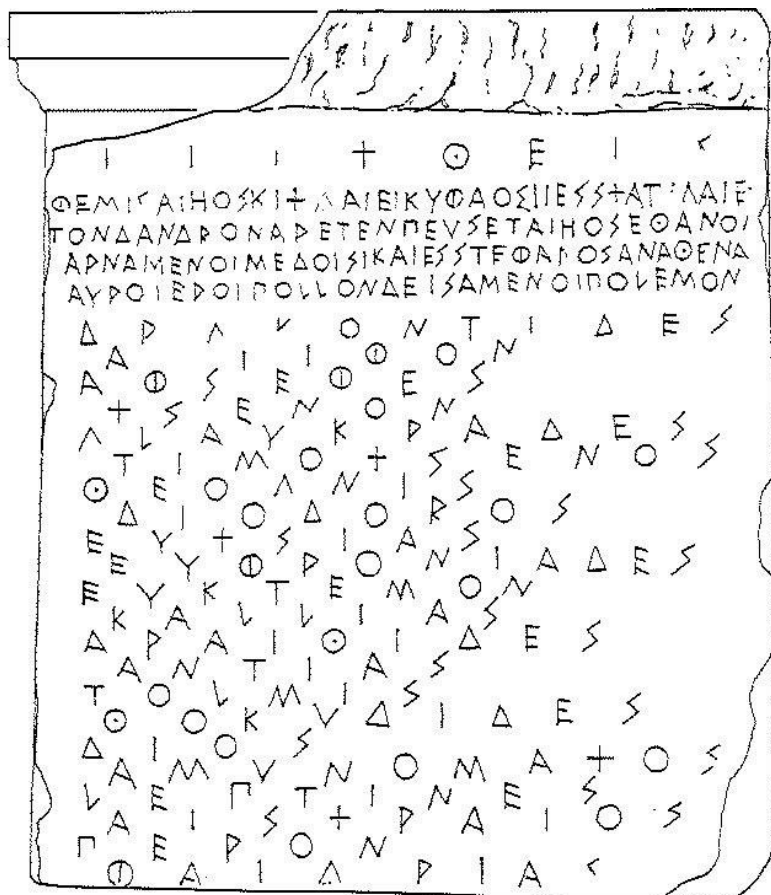 Ι Ι Ι Χ Θ Ε Ι Σ
ΦΕΜΙΓΑΙΗΟΣΚΙΧΛΑΙΕΙΚΥΦΑΟΣΙΙΕΣΣΧΑΤΙΛΑΙΕ
ΤΟΝΔΑΝΔΡΟΝΑΡΕΤΕΝΠΕΥΣΕΤΑΙΗΟΣΕΘΑΝΟΙ
ΑΡΝΑΜΕΝΟΙΜΕΔΟΙΣΙΚΑΙΕΣΣΤΕΦΑΝΟΣΑΝΑΘΕΝΑ
ΑΥΡΟΙΕΡΟΙΠΟΛΛΟΝΔΕΙΣΑΜΕΝΟΙΠΟΛΕΜΟΝ
ΔΡΑΚΟΝΤΙΔΕΣ
ΑΙΙΦΟΝ
ΑΦΣΕΦΕΣ
ΧΣΕΝΟΝ
ΓΛΑΥΚΡΑΔΕΣ
ΤΙΜΟΧΣΕΝΟΣ
ΘΕΟΓΝΙΣ
ΔΙΟΔΟΡΟΣ
ΕΥΧΣΙΑΣ
ΕΥΦΡΟΝΙΑΔΕΣ
ΕΥΚΤΕΜΟΝ
ΚΑΛΛΙΑΣ
ΑΡΑΙΘΙΔΕΣ
ΑΝΤΙΑΣ
ΤΟΛΜΙΣ
ΘΟΚΥΔΙΔΕΣ
ΔΙΟΣ
ΑΜΥΝΟΜΑΧΟΣ
ΛΕΠΤΙΝΕΣ
ΑΙΣΧΡΑΙΟΣ
ΠΕΡΟΝ
ΦΑΙΔΡΙΑΣ